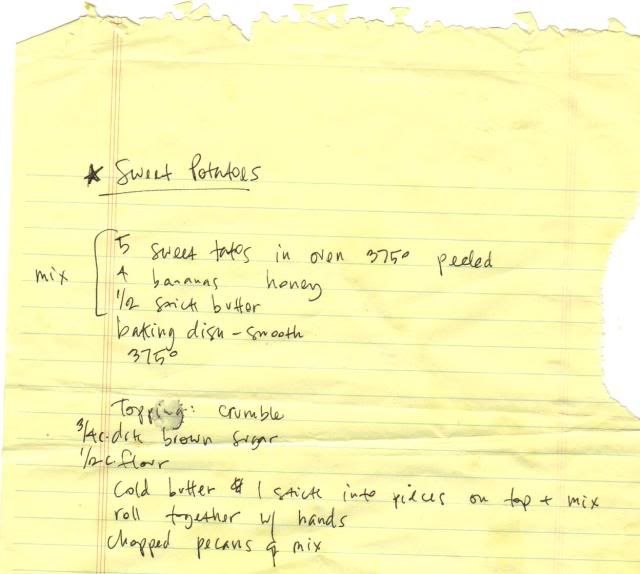 * Sweet Potatoes
5 sweet tatos in oven 375° peeled
mix
4 bananas honey
1/2 stick butter
baking dish - smooth
375°
Topping: crumble
3/4 c. drk brown sugar
1/2 c. flour
Cold butter 1 stick into pieces on top + mix
roll together w/ hands
chopped pecans & mix